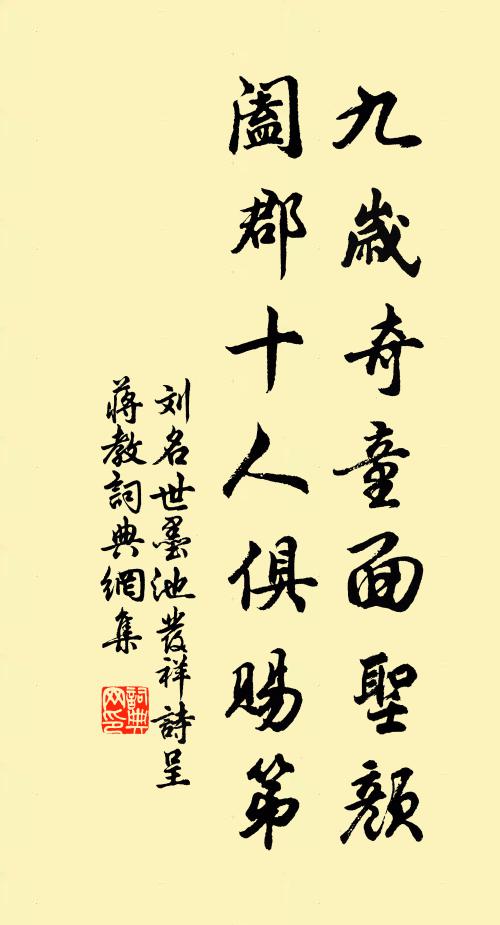 九歲奇童面聖顏
闔郡十人俱賜第
刘名世墨池發祥詩呈
蔣教詞典網集
詞典网印